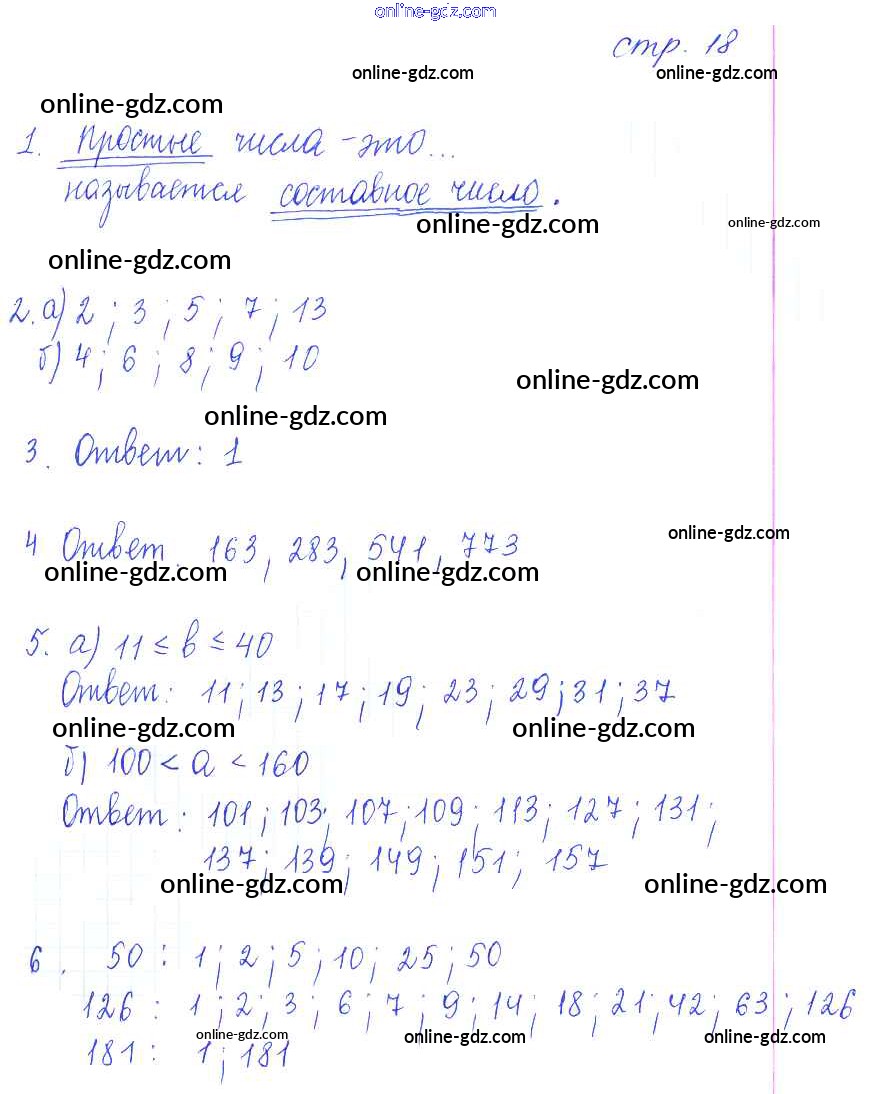 online-gdz.com
стр. 18
online-gdz.com online-gdz.com
online-gdz.com
1. Простые числа - это...
называется составное число.
online-gdz.com online-gdz.com
online-gdz.com
2. а) 2 ; 3 ; 5 ; 7 ; 13
б) 4 ; 6 ; 8 ; 9 ; 10
online-gdz.com
online-gdz.com
3. Ответ: 1
online-gdz.com
4 Ответ. 163, 283, 541, 773
online-gdz.com online-gdz.com
5. а) 11 ≤ b ≤ 40
Ответ: 11 ; 13 ; 17 ; 19 ; 23 ; 29 ; 31 ; 37
online-gdz.com online-gdz.com
б) 100 < a < 160
Ответ: 101 ; 103; 107; 109; 113; 127; 131;
137; 139; 149; 151; 157
online-gdz.com online-gdz.com
6. 50 : 1 ; 2 ; 5 ; 10 ; 25 ; 50
126 : 1 ; 2 ; 3 ; 6 ; 7 ; 9 ; 14 ; 18 ; 21 ; 42 ; 63 ; 126
online-gdz.com online-gdz.com online-gdz.com
181 : 1 ; 181